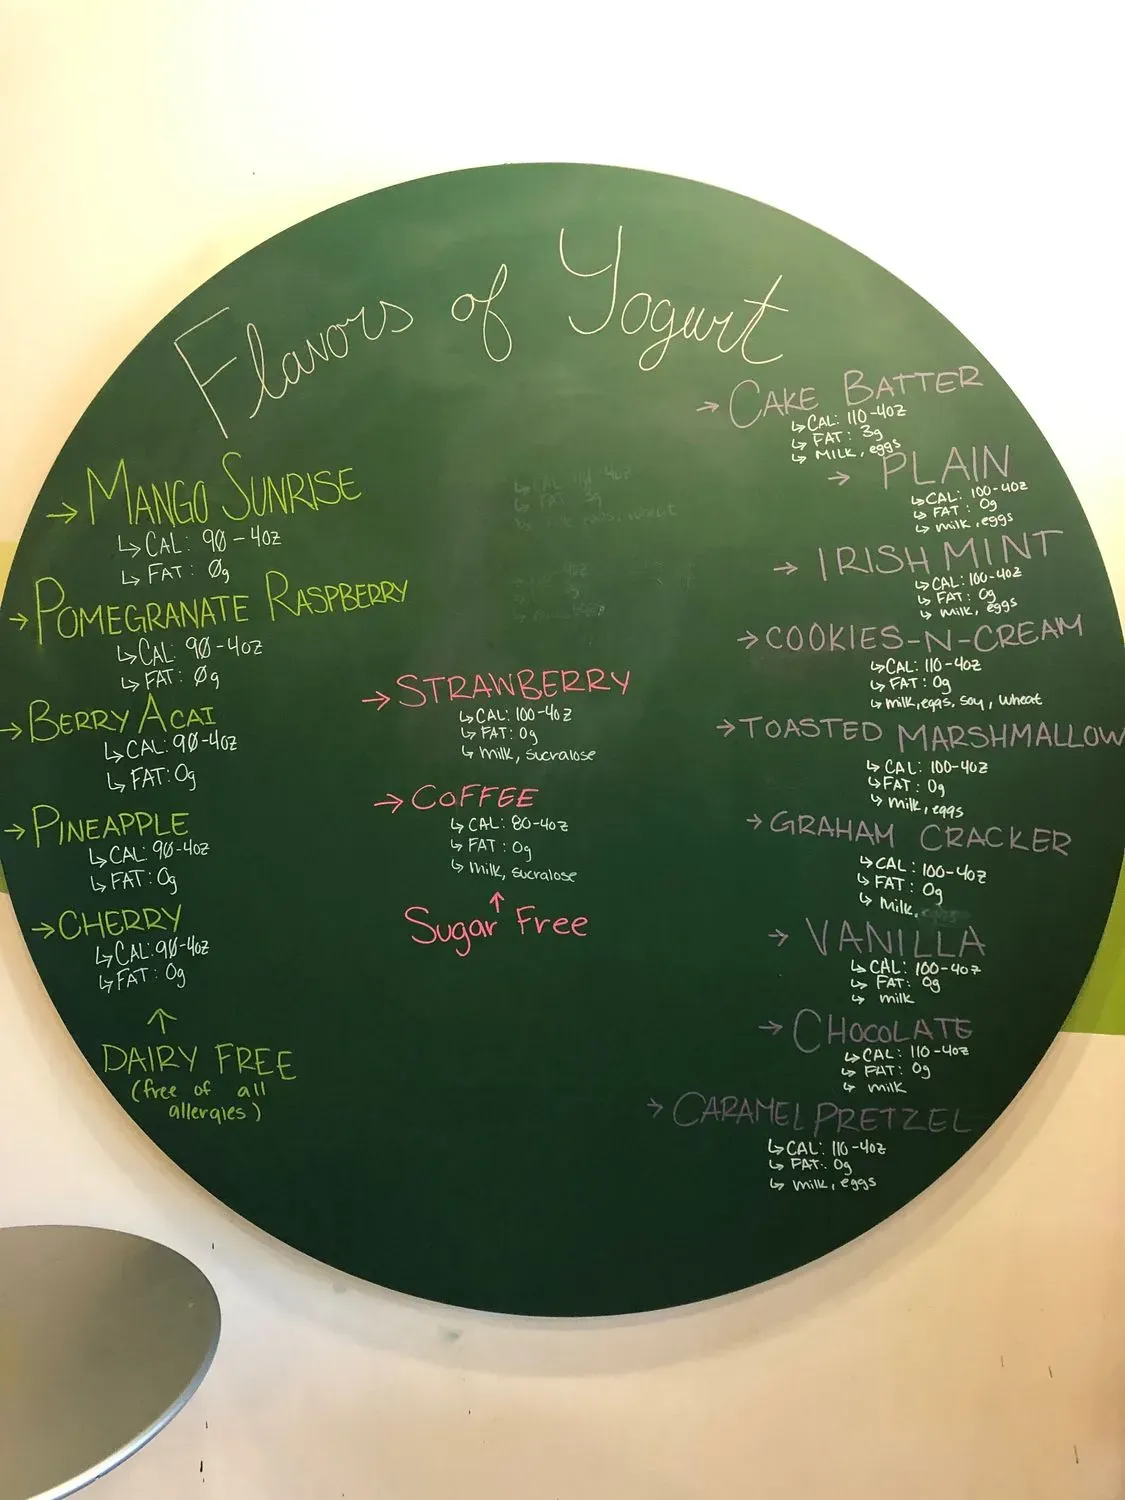 Flavors of Yogurt
→ MANGO SUNRISE
↳ CAL: 90 - 4oz
↳ FAT: 0g
→ POMEGRANATE RASPBERRY
↳ CAL: 90-4oz
↳ FAT: 0g
→ BERRY ACAI
↳ CAL: 90-4oz
↳ FAT: 0g
→ PINEAPPLE
↳ CAL: 90-4oz
↳ FAT: 0g
→ CHERRY
↳ CAL: 90-4oz
↳ FAT: 0g
↑
DAIRY FREE
(free of all
allergies)
→ STRAWBERRY
↳ CAL: 100-4oz
↳ FAT: 0g
↳ milk, sucralose
→ COFFEE
↳ CAL: 80-4oz
↳ FAT: 0g
↳ milk, sucralose
↑
Sugar Free
→ CAKE BATTER
↳ CAL: 110-4oz
↳ FAT: 3g
↳ MILK, eggs
→ PLAIN
↳ CAL: 100-4oz
↳ FAT: 0g
↳ milk, eggs
→ IRISH MINT
↳ CAL: 100-4oz
↳ FAT: 0g
↳ milk, eggs
→ COOKIES-N-CREAM
↳ CAL: 110-4oz
↳ FAT: 0g
↳ milk, eggs, soy, wheat
→ TOASTED MARSHMALLOW
↳ CAL: 100-4oz
↳ FAT: 0g
↳ milk, eggs
→ GRAHAM CRACKER
↳ CAL: 100-4oz
↳ FAT: 0g
↳ milk,
→ VANILLA
↳ CAL: 100-4oz
↳ FAT: 0g
↳ milk
→ CHOCOLATE
↳ CAL: 110-4oz
↳ FAT: 0g
↳ milk
→ CARAMEL PRETZEL
↳ CAL: 110-4oz
↳ FAT: 0g
↳ milk, eggs